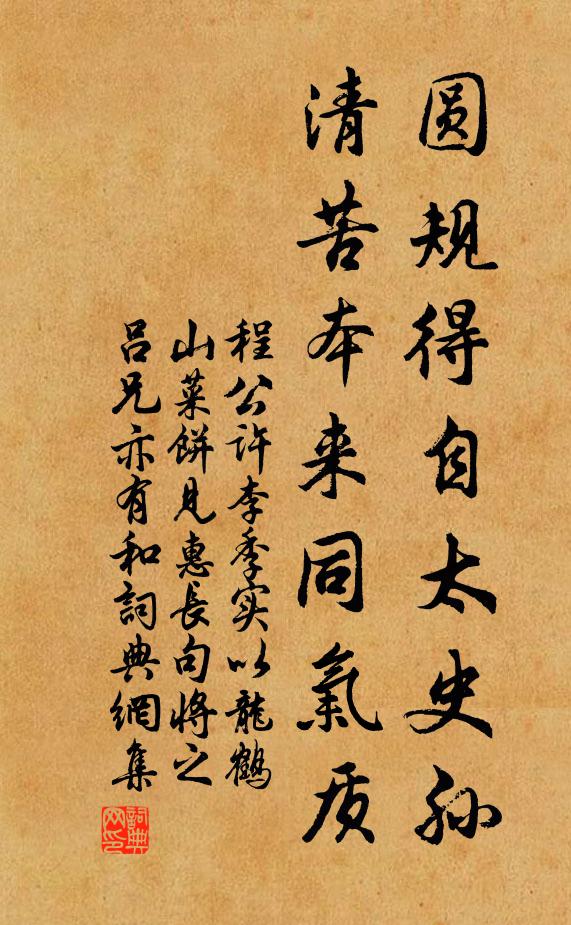 圆规得自太史孙
清苦本来同氣质
程公许李季实以龍鶴
山菜餅見惠長句将之
吕兄亦有和詞典網集
詞典网印